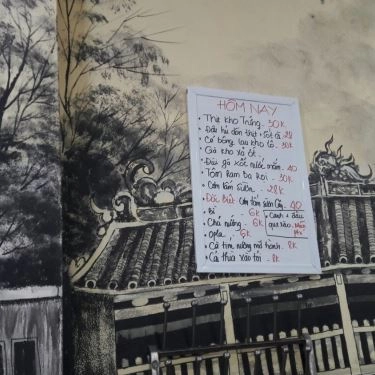 HÔM NAY
• Thịt kho Trứng. 30K
• Đậu hủ dồn thịt + sốt cà 28
• Cá bống lau kho tộ. 30K
• Gà kho xả ớt
• Đùi gà xốc nước mắm. 40
• Tôm Ram Ba Rọi. 30K
• Cơm tấm Sườn. 28K
• Đặc Biệt Cơm tấm sườn Cây 40
• Bì 6K
• Chả nướng. 6K
• opla. 6K
• Canh + Rau
• Cà tím nướng mỡ hành. 8K
• Cà thừa xào tỏi. 8k